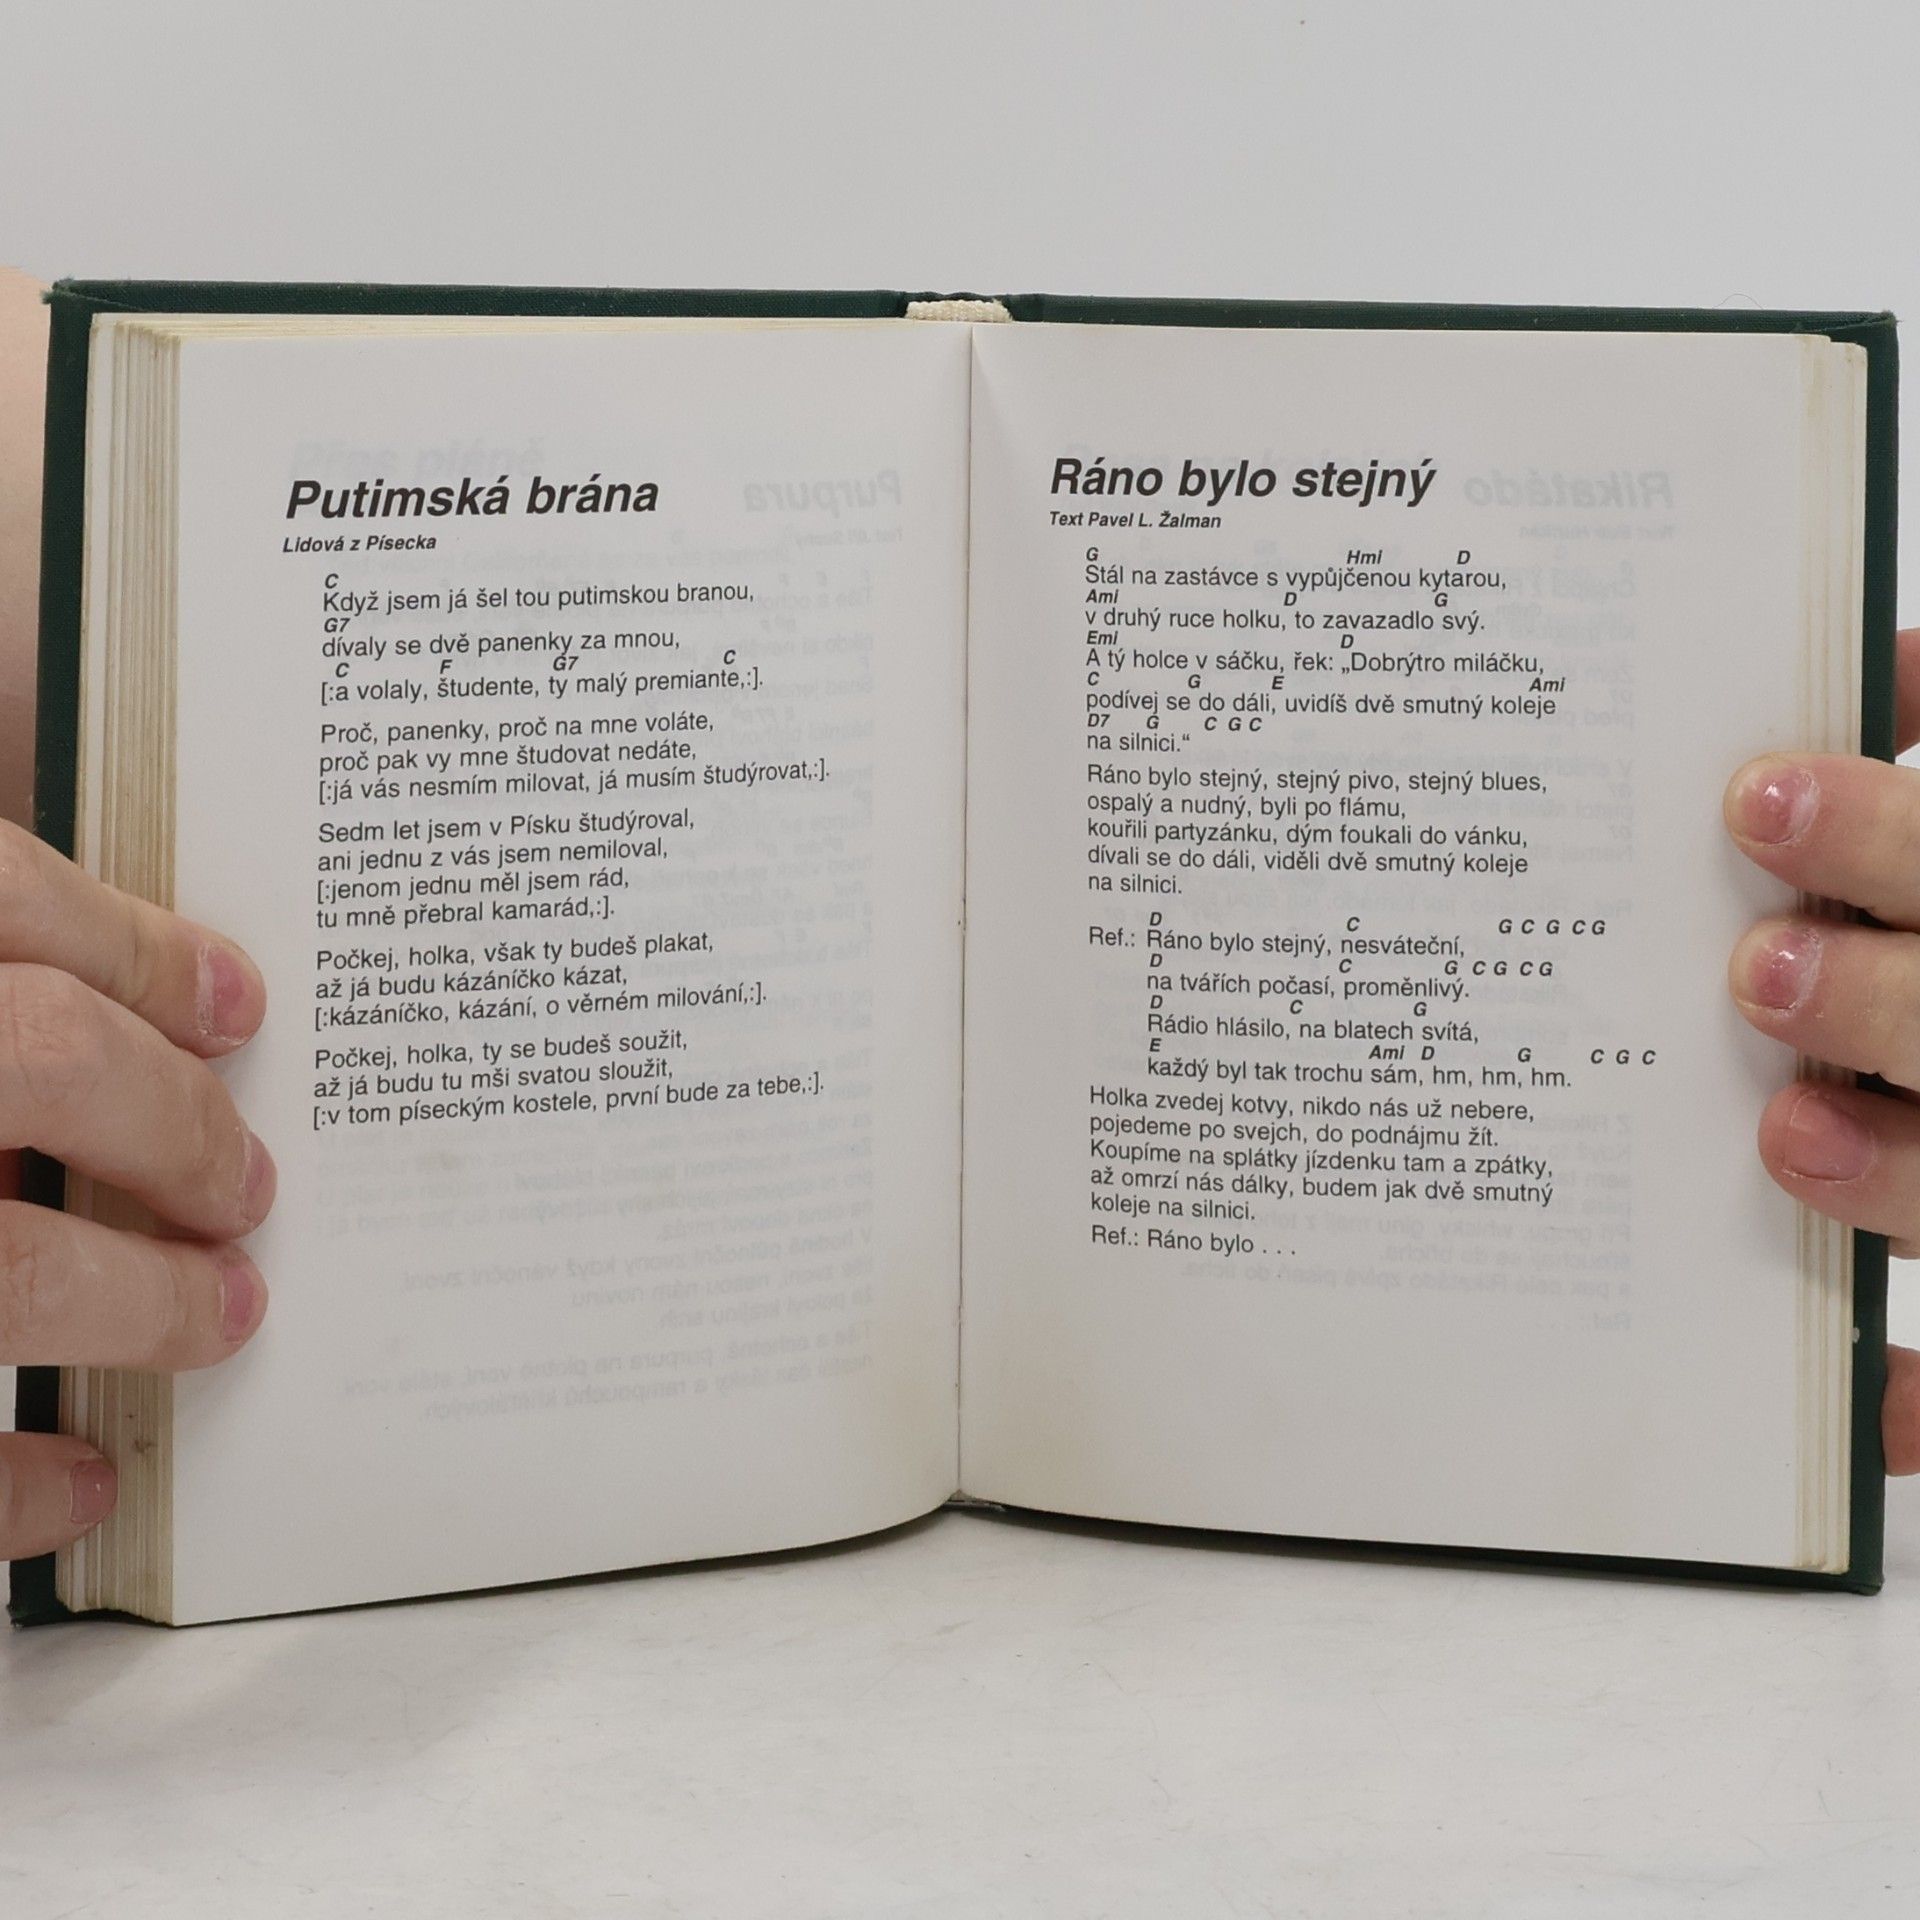 Putimská brána
Lidová z Písecka
C
Když jsem já šel tou putimskou branou,
G7
dívaly se dvě panenky za mnou,
C F G7 C
[:a volaly, študente, ty malý premiante,:].
Proč, panenky, proč na mne voláte,
proč pak vy mne študovat nedáte,
[:já vás nesmím milovat, já musím študýrovat,:].
Sedm let jsem v Písku študýroval,
ani jednu z vás jsem nemiloval,
[:jenom jednu měl jsem rád,
tu mně přebral kamarád,:].
Počkej, holka, však ty budeš plakat,
až já budu kázáníčko kázat,
[:kázáníčko, kázání, o věrném milování,:].
Počkej, holka, ty se budeš soužit,
až já budu tu mši svatou sloužit,
[:v tom píseckým kostele, první bude za tebe,:].
Ráno bylo stejný
Text Pavel L. Žalman
G Hmi D
Stál na zastávce s vypůjčenou kytarou,
Ami D G
v druhý ruce holku, to zavazadlo svý.
Emi D
A tý holce v sáčku, řek: „Dobrýtro miláčku,
C G E Ami
podívej se do dáli, uvidíš dvě smutný koleje
D7 G C G C
na silnici.“
Ráno bylo stejný, stejný pivo, stejný blues,
ospalý a nudný, byli po flámu,
kouřili partyzánku, dým foukali do vánku,
dívali se do dáli, viděli dvě smutný koleje
na silnici.
D C G C G C G
Ref.: Ráno bylo stejný, nesváteční,
D C G C G C G
na tvářích počasí, proměnlivý.
D C G
Rádio hlásilo, na blatech svítá,
E Ami D G C G C
každý byl tak trochu sám, hm, hm, hm.
Holka zvedej kotvy, nikdo nás už nebere,
pojedeme po svejch, do podnájmu žít.
Koupíme na splátky jízdenku tam a zpátky,
až omrzí nás dálky, budem jak dvě smutný
koleje na silnici.
Ref.: Ráno bylo . . .